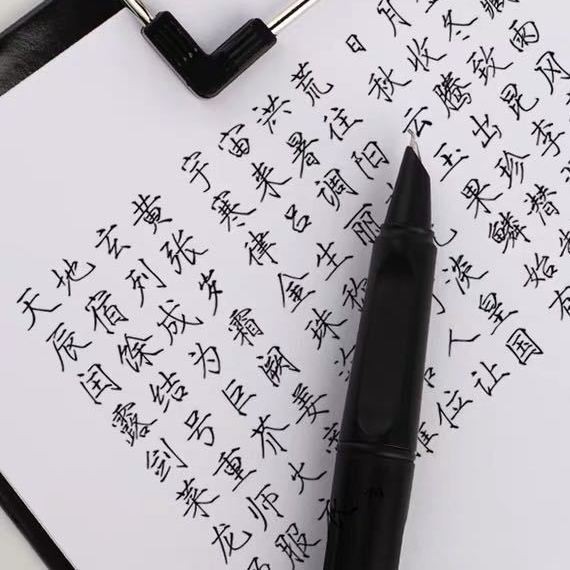 天地玄黄 宇宙洪荒 日月
辰宿列张 寒来暑往 秋收冬藏
闰馀成岁 律吕调阳 云腾致雨
露结为霜 金生丽 玉出昆冈
剑号巨阙 珠称 果珍李
菜重芥姜 淡 鳞潜
龙师火 人皇 始
服衣 位让国 有